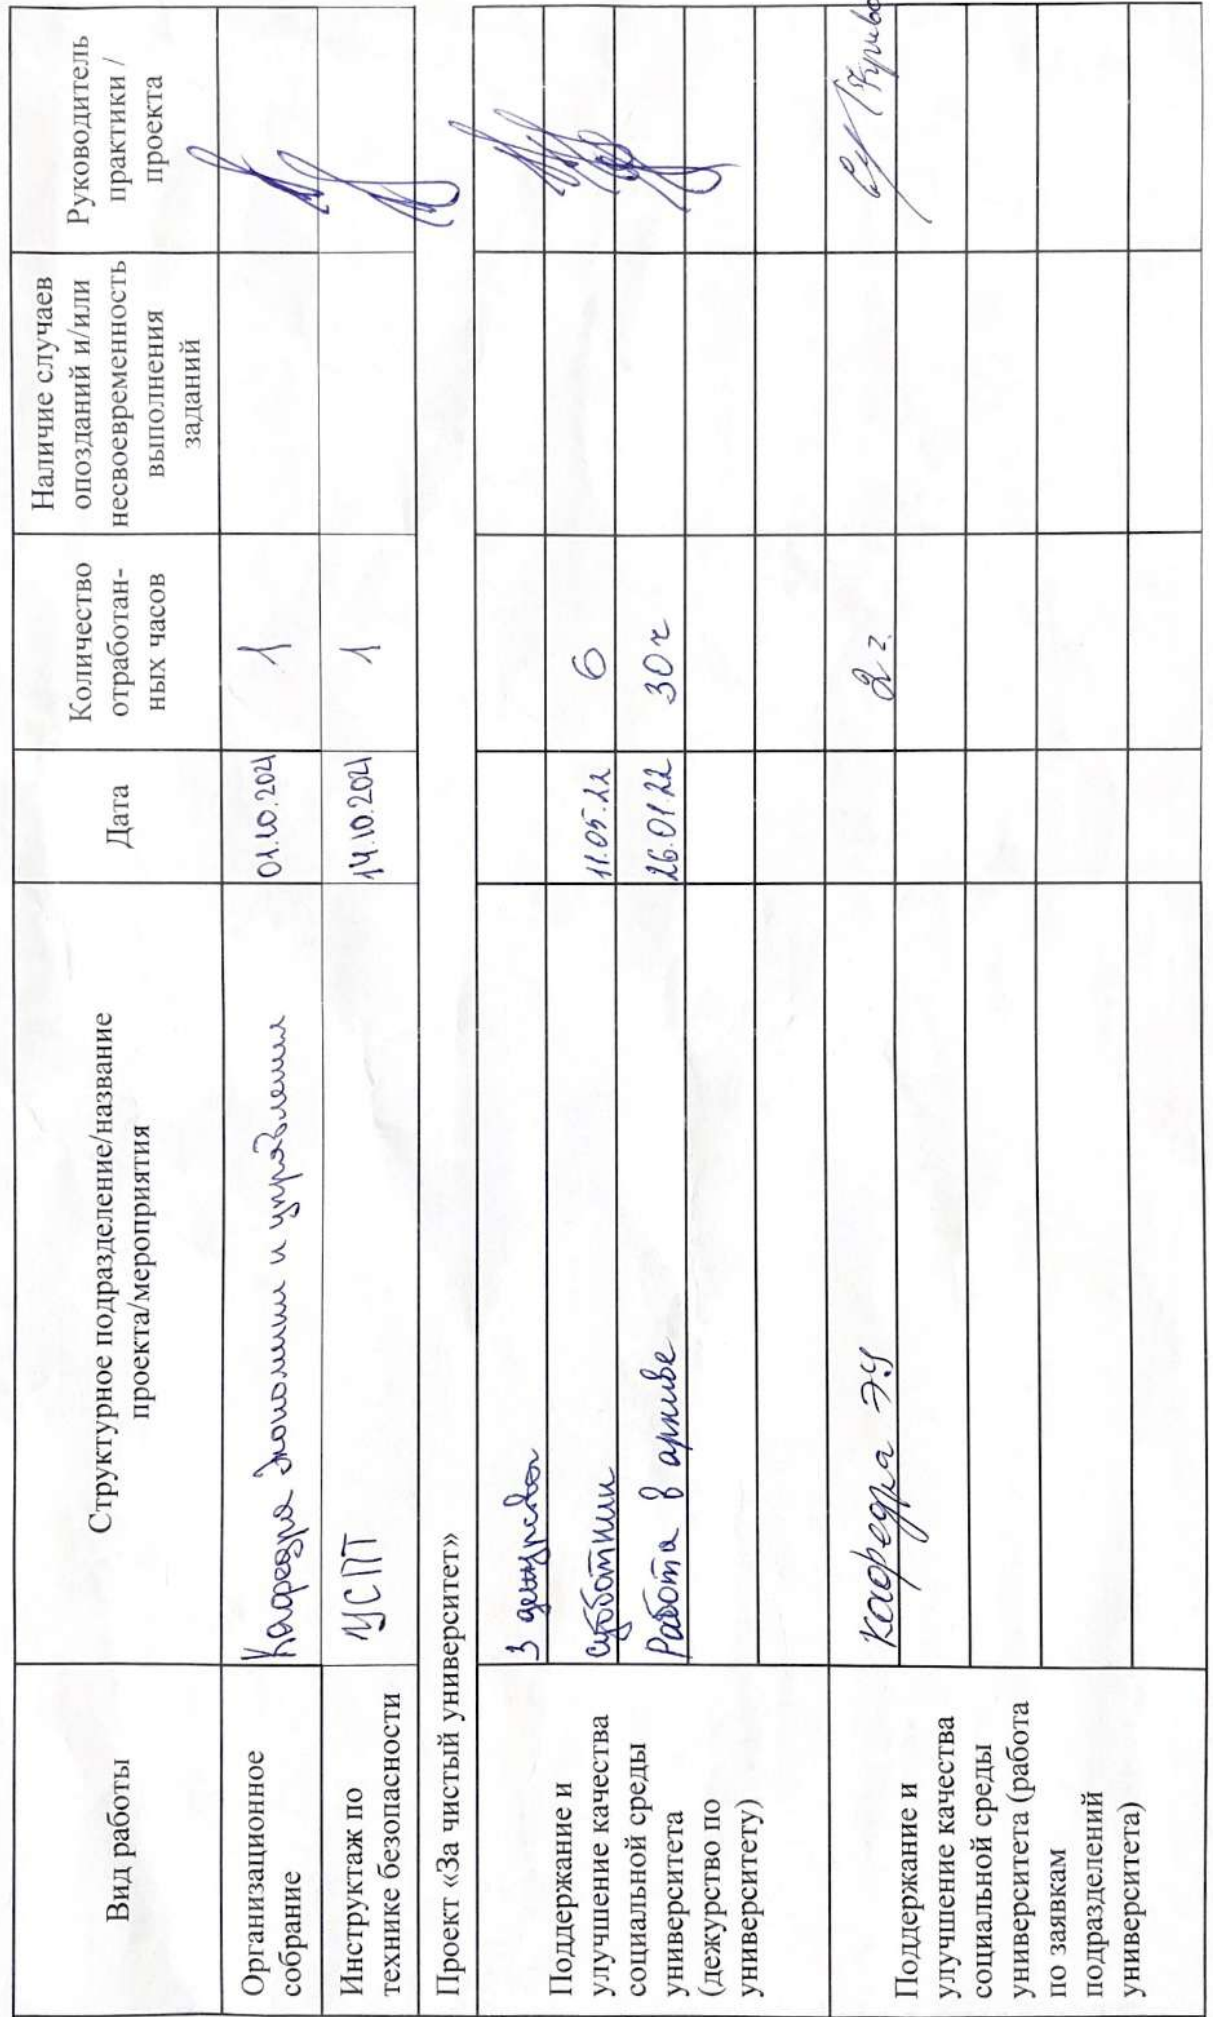 Вид работы
Структурное подразделение/название
проекта/мероприятия
Дата
Количество
отработан-
ных часов
Наличие случаев
опозданий и/или
несвоевременность
выполнения
заданий
Руководитель
практики /
проекта
Организационное
собрание
Кафедра экономики и управления
01.10.2021
1
Инструктаж по
технике безопасности
УСПТ
14.10.2021
1
Проект «За чистый университет»
Поддержание и
улучшение качества
социальной среды
университета
(дежурство по
университету)
3 дежурства
Субботник
11.05.22
6
Работа в архиве
26.01.22
30ч
Поддержание и
улучшение качества
социальной среды
университета (работа
по заявкам
подразделений
университета)
Кафедра ЭУ
2 ч.